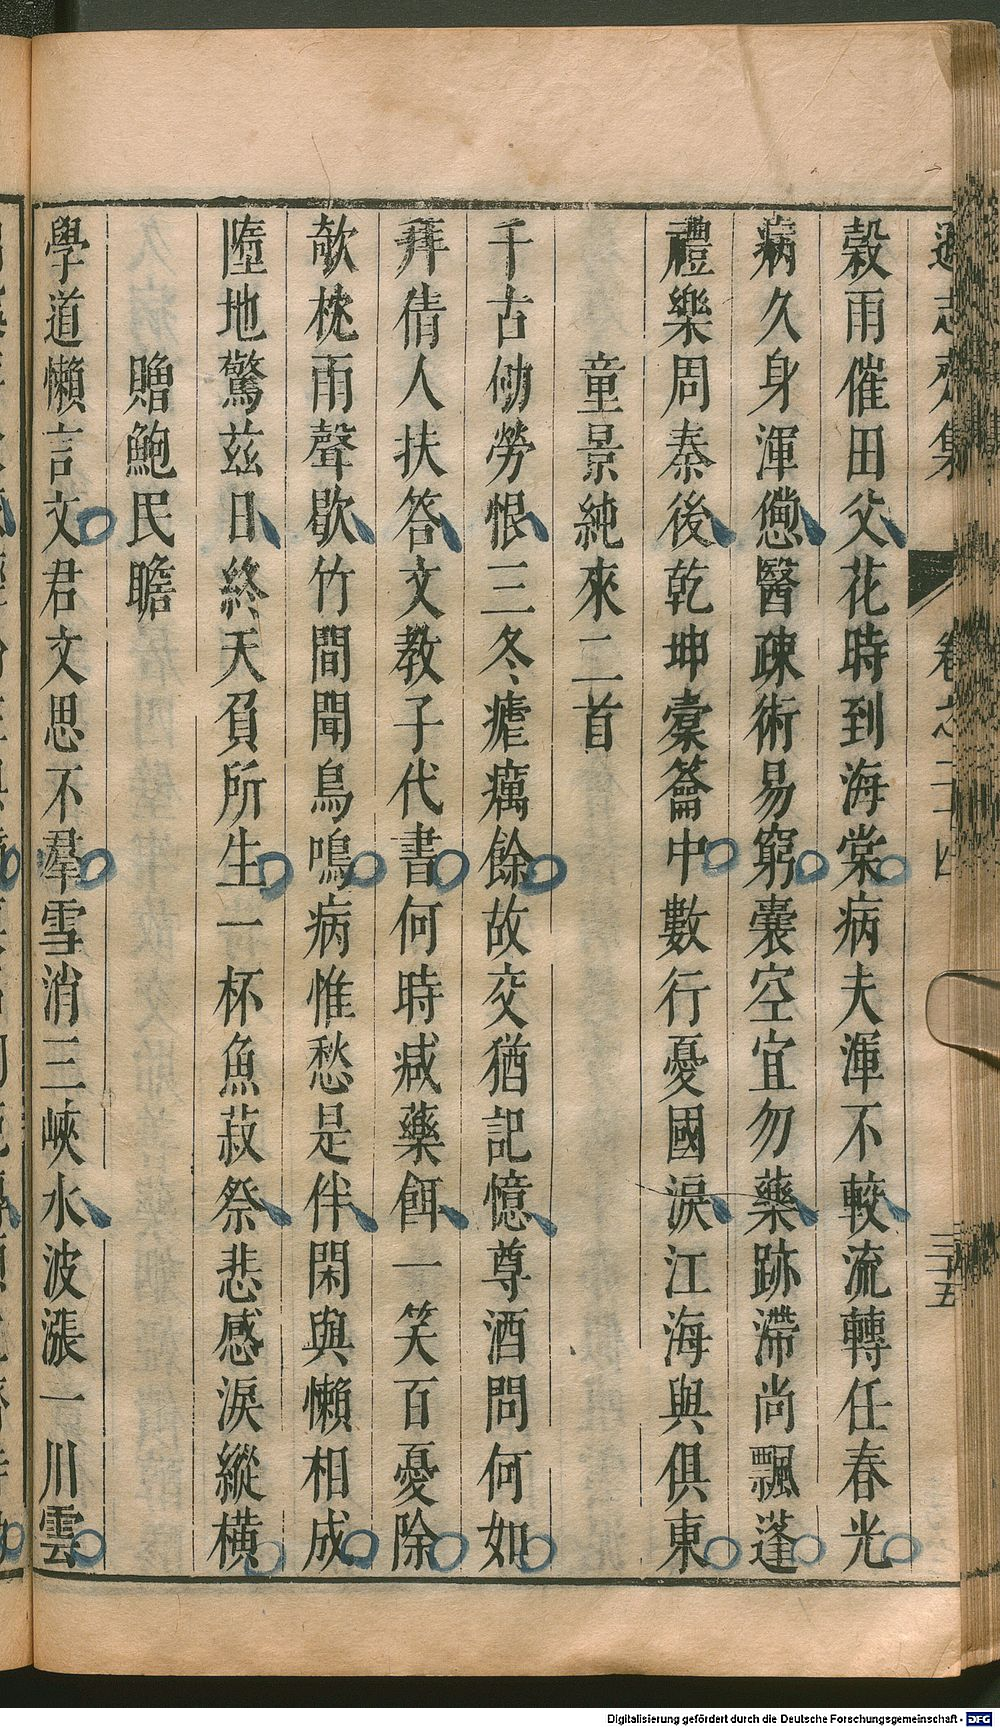 遜志齋集
卷之二十四
三十五
穀雨催田父花時到海棠病夫渾不較流轉任春光
病久身渾憊醫疎術易窮囊空宜勿藥跡滯尚飄蓬
禮樂周秦後乾坤橐籥中數行憂國淚江海與俱東
童景純來二首
千古劬勞恨三冬瘧癘餘故交猶記憶尊酒問何如
拜倩人扶答文教子代書何時減藥餌一笑百憂除
欹枕雨聲歇竹間聞鳥鳴病惟愁是伴閑與懶相成
墮地驚茲日終天負所生一杯魚菽祭悲感淚縱橫
贈鮑民瞻
學道懶言文君文思不羣雪消三峽水波漲一川雲
Digitalisierung gefördert durch die Deutsche Forschungsgemeinschaft - DFG